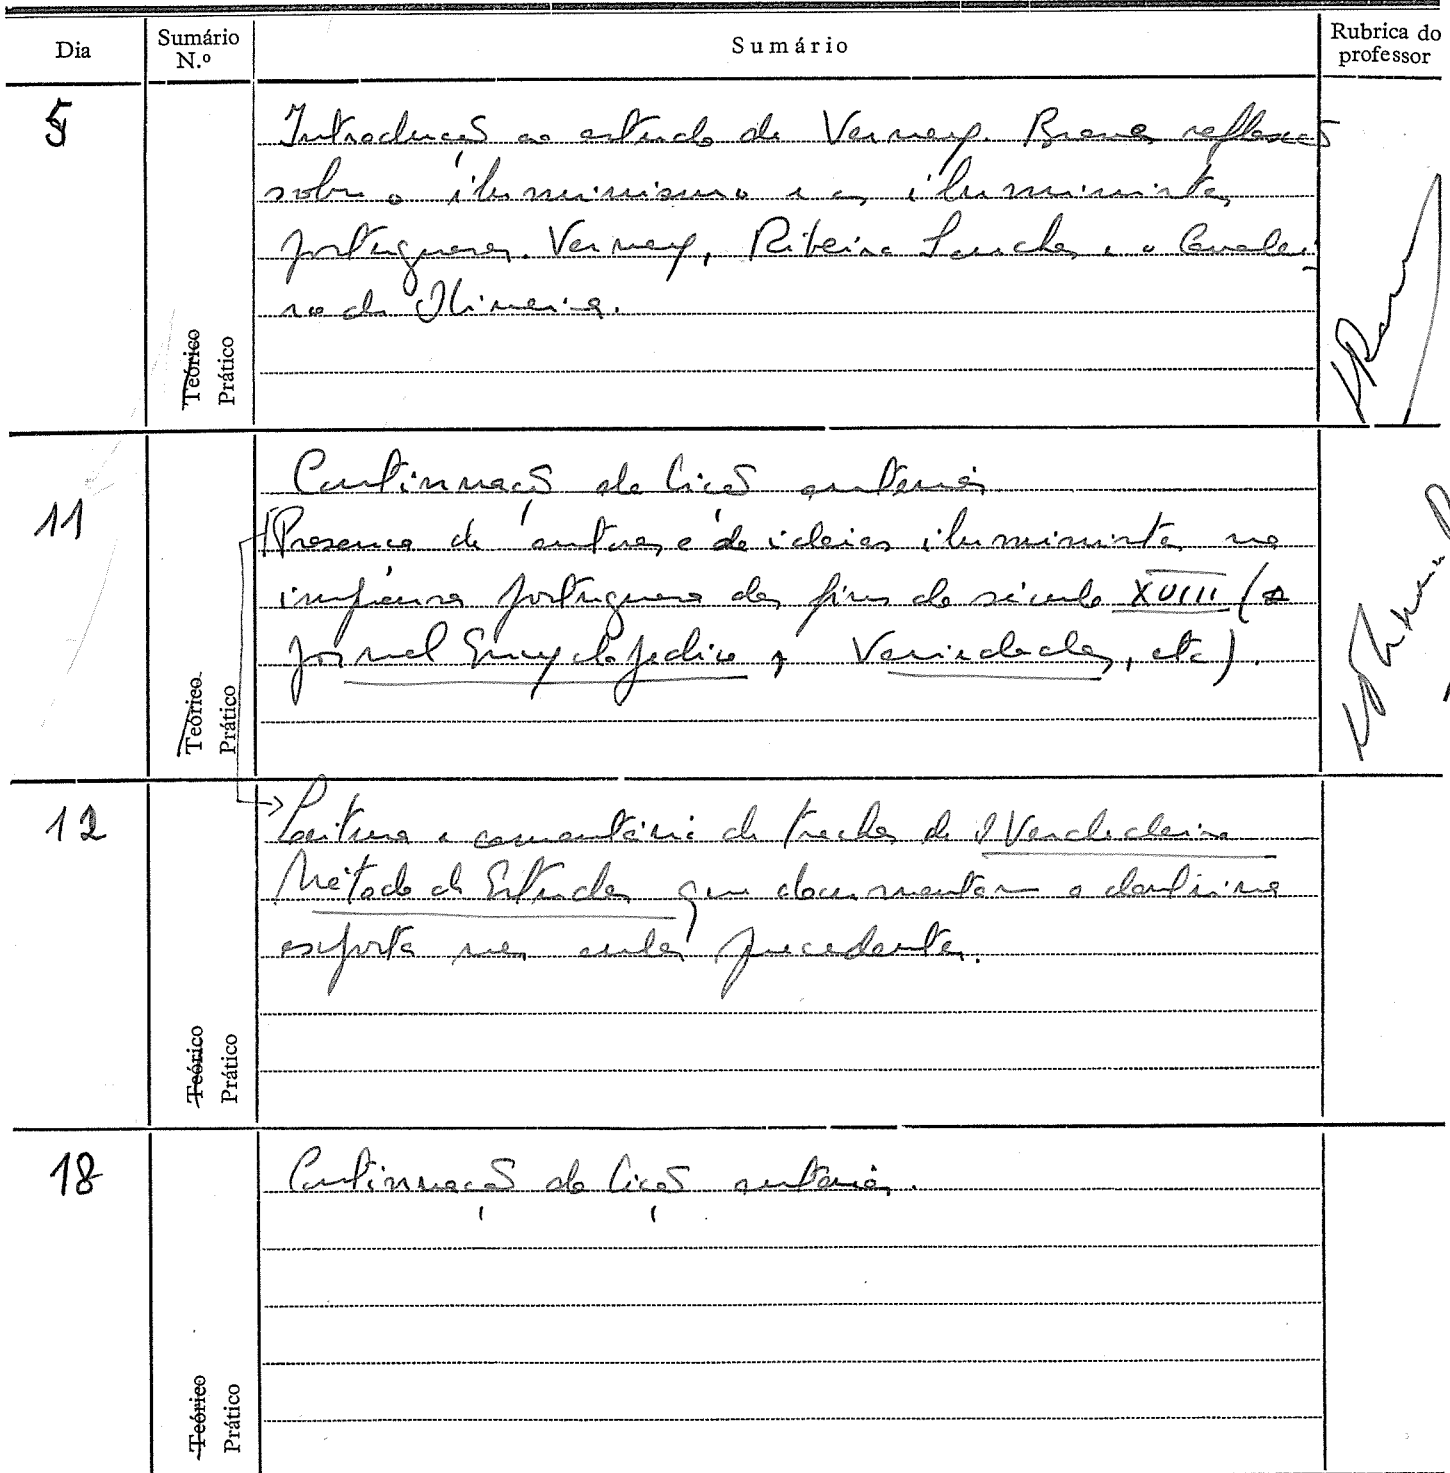 Dia
Sumário
N.º
Sumário
Rubrica do
professor
5
Introdução ao estudo de Verney. Breve reflexão
sobre o iluminismo e os iluministas
portugueses. Verney, Ribeiro Sanches e o Cavalei-
ro de Oliveira.
Teórico
Prático
11
Continuação da lição anterior
Presença de autores e de ideias iluministas na
imprensa portuguesa dos fins do século XVIII (o
Jornal Encyclopedico, Variedades, etc).
Teórico
Prático
12
Leitura e comentário de trechos de O Verdadeiro
Método de Estudar que documentam a doutrina
exposta nas aulas precedentes.
Teórico
Prático
18
Continuação da lição anterior.
Teórico
Prático